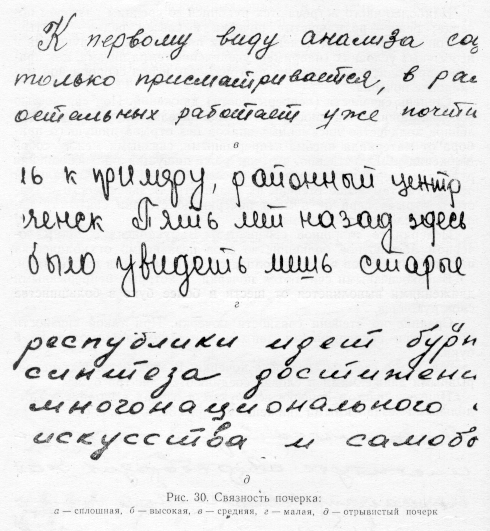 К первому виду анализа со
только присматривается, в ра
остальных работает уже почти
в
ь к примеру, районный центр
ленск Пять лет назад здесь
было увидеть лишь старые
г
республики идет бурн
синтеза достижени
многонационального
искусства и самобо
д
Рис. 30. Связность почерка:
а — сплошная, б — высокая, в — средняя, г — малая, д — отрывистый почерк